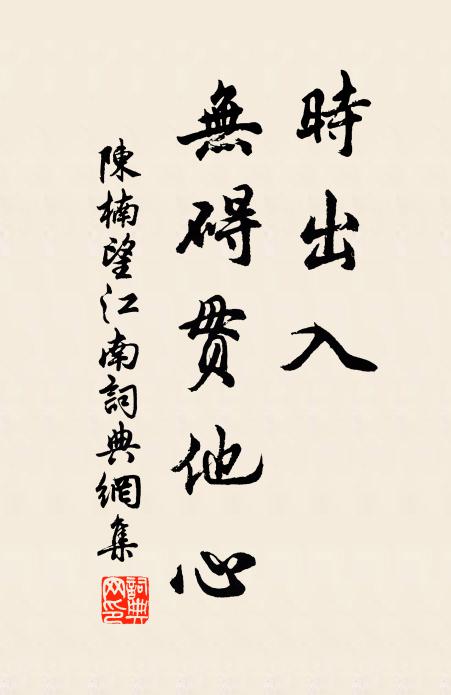 時出入
無碍貫他心
陳楠望江南詞典網集
詞典网印